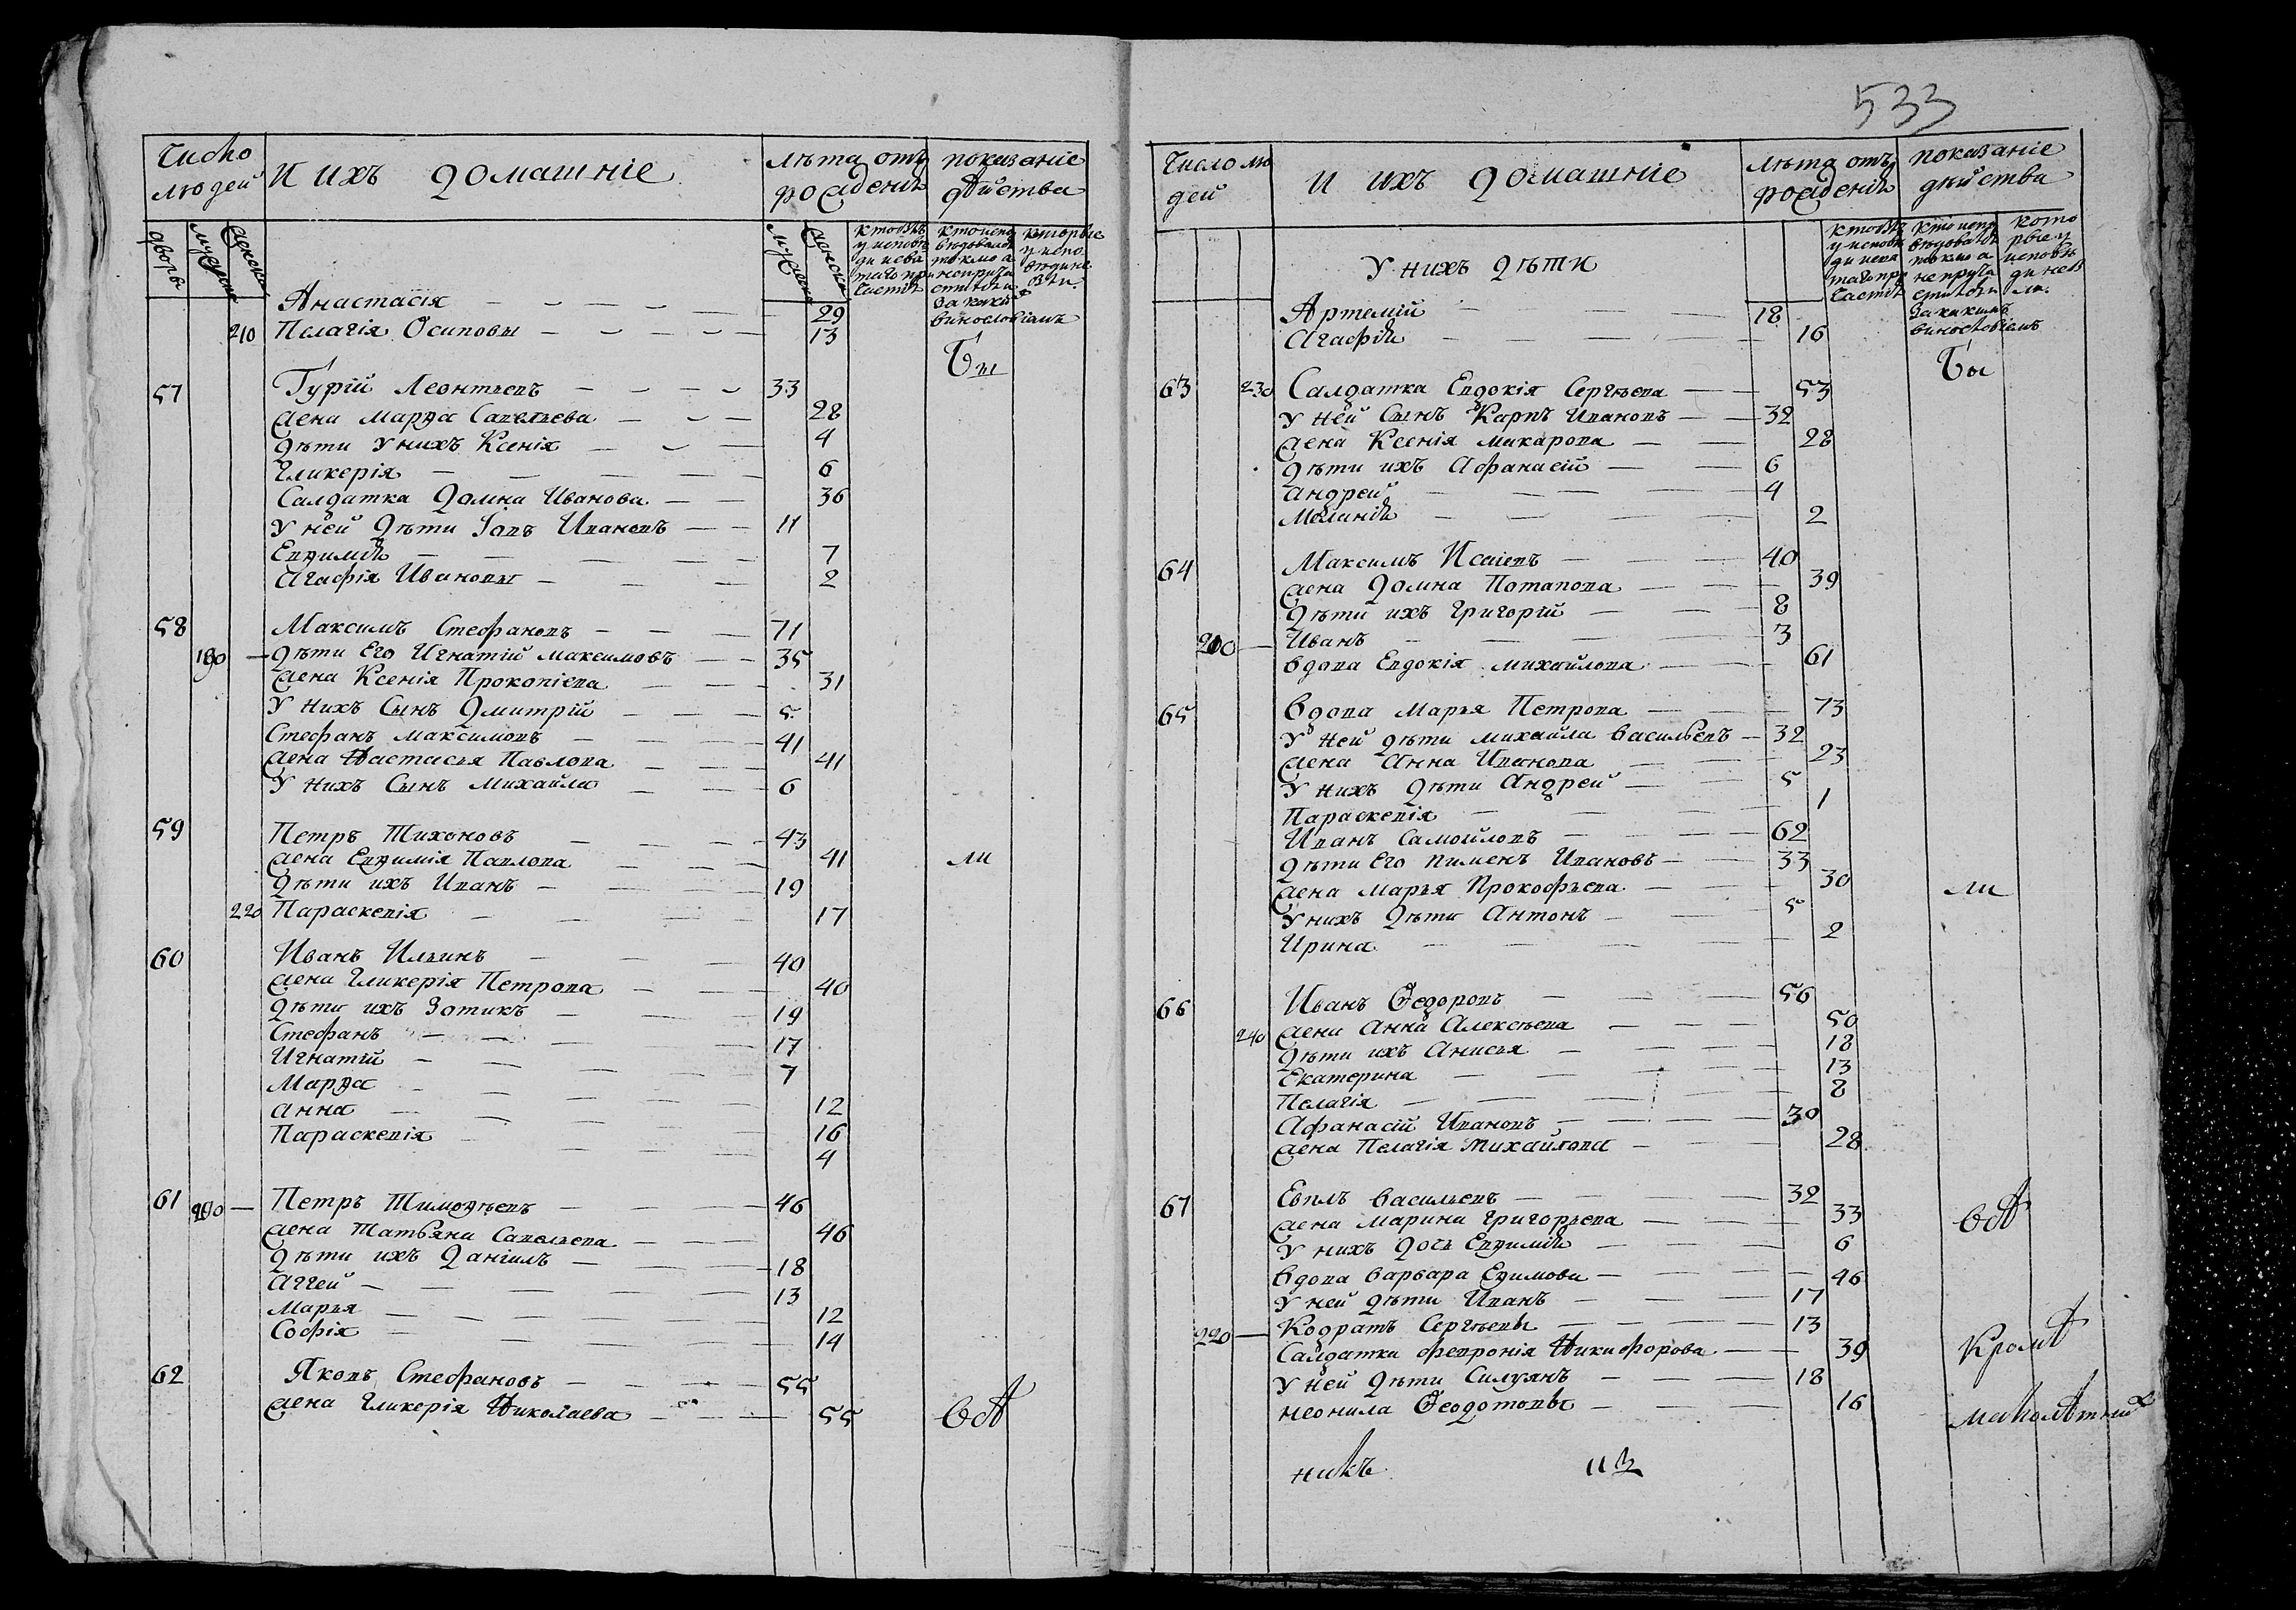 533
Число людей
И ихъ домашніе
лѣта отъ рожденія
показаніе дѣйства
дворы
мужеска
женска
мужеска
женска
Анастасія 29
210 Пелагія Осиповы 13
Бы
57 Гурій Леонтьевъ 33
жена Марѳа Савельева 28
дѣти у нихъ Ксенія 4
Гликерія 6
Салдатка Домна Иванова 36
у ней дѣти Іовъ Ивановъ 11
Евѳимія 7
Агафія Ивановы 2
58 Максимъ Стефановъ 71
190 дѣти Его Игнатій Максимовъ 35
жена Ксенія Прокопіева 31
У нихъ Сынъ Дмитрій 5
Стефанъ Максимовъ 41
жена Настасья Павлова 41
У нихъ Сынъ Михайла 6
59 Петръ Тихоновъ 43
жена Евѳимія Павлова 41
ли
дѣти ихъ Иванъ 19
220 Параскевія 17
60 Иванъ Ильинъ 40
жена Гликерія Петрова 40
дѣти ихъ Зотикъ 19
Стефанъ 17
Игнатій 7
Марѳа 12
Анна 16
Параскевія 4
61 200 Петръ Тимоѳѣевъ 46
жена Татьяна Савельева 46
дѣти ихъ Даніилъ 18
Аггей 13
Марья 12
Софія 14
62 Яковъ Стефановъ 55
жена Гликерія Николаева 55
Всѣ
Число людей
И ихъ домашніе
лѣта отъ рожденія
показаніе дѣйства
У нихъ дѣти
Артемій 18
Агафія 16
Бы
63 230 Салдатка Евдокія Сергѣева 53
У ней Сынъ Карпъ Ивановъ 32
жена Ксенія Макарова 28
дѣти ихъ Афанасій 6
Андрей 4
Меланія 2
64 Максимъ Исаіевъ 40
жена Домна Потапова 39
дѣти ихъ Григорій 8
Иванъ 3
вдова Евдокія Михайлова 61
65 Вдова Марья Петрова 73
У ней дѣти Михайла Васильевъ 32
жена Анна Иванова 23
У нихъ дѣти Андрей 5
Параскевія 1
Иванъ Самойловъ 62
дѣти Его Пименъ Ивановъ 33
жена Марья Прокофьева 30
ли
У нихъ дѣти Антонъ 5
Ирина 2
66 Иванъ Ѳедоровъ 56
240 жена Анна Алексѣева 50
дѣти ихъ Анисья 18
Екатерина 13
Пелагія 8
Афанасій Ивановъ 30
жена Пелагія Михайлова 28
67 Евплъ Васильевъ 32
жена Марина Григорьева 33
Всѣ
У нихъ дочь Евѳимія 6
Вдова Варвара Ефимова 46
У ней дѣти Иванъ 17
220 Кодратъ Сергѣевы 13
Салдатка Февронія Никифорова 39
Кромѣ
У ней дѣти Силуянъ 18
Неонила Ѳеодотовы 16
малолѣтныхъ
никъ из